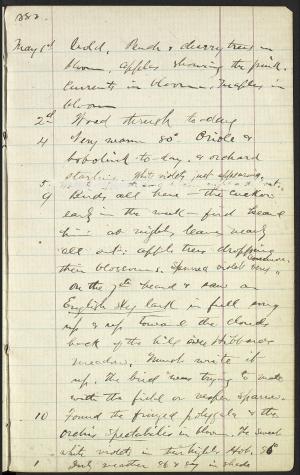 1882.
May 1st Cold. Peach & cherry trees in
bloom, apples showing the pink.
Currents in bloom. Maples in
bloom
2d Wood thrush to-day
4 Very warm 80° Oriole &
bobolink to-day. & orchard
starling. White violets just appearing.
5
9 Birds all here — the cuckoo
early in the week — first heard
him at night; leaves nearly
all out; apple trees dropping
their blossoms. Spurred violet
On the 7th heard & saw an
English sky lark in full song
up & up toward the clouds
back of the hill over
meadow. Must write it
up. the bird was trying to mate
with the field or vesper sparrow.
10 Found the fringed polygala & the
orchis spectabilis in bloom. The sweet
white violets in Hot. 86°
July weather 86 & 87 in shade